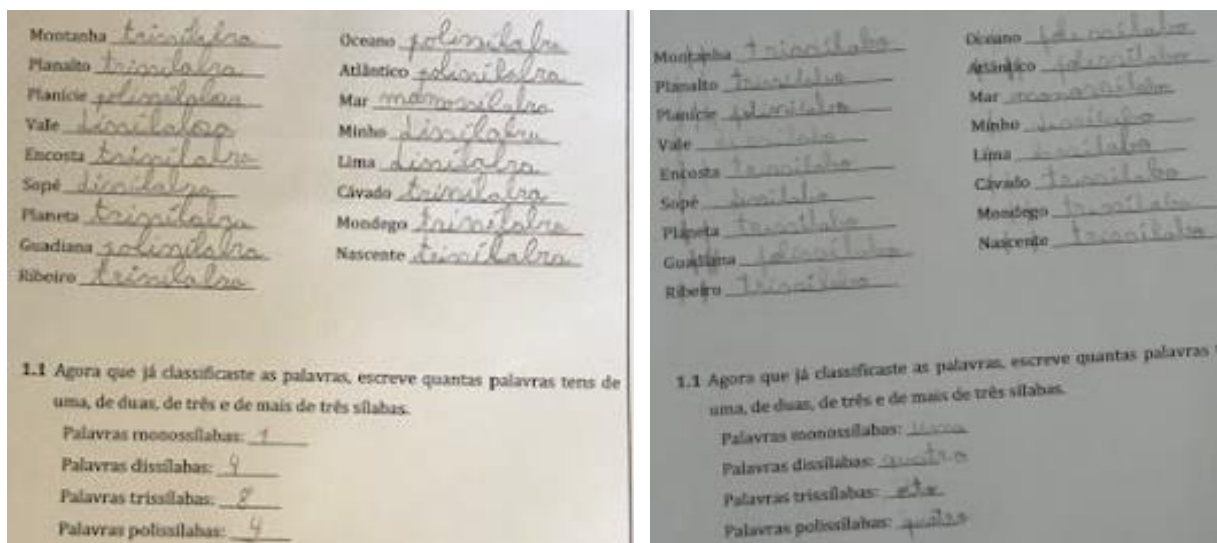 Montanha trissílabo
Planalto trissílabo
Planície polissílabo
Vale dissílabo
Encosta trissílabo
Sopé dissílabo
Planeta trissílabo
Guadiana polissílabo
Ribeiro trissílabo
Oceano polissílabo
Atlântico polissílabo
Mar monossílabo
Minho dissílabo
Lima dissílabo
Cávado trissílabo
Mondego trissílabo
Nascente trissílabo
1.1 Agora que já classificaste as palavras, escreve quantas palavras tens de
uma, de duas, de três e de mais de três sílabas.
Palavras monossílabas: 1
Palavras dissílabas: 4
Palavras trissílabas: 8
Palavras polissílabas: 4
Montanha trissílabo
Planalto trissílabo
Planície polissílabo
Vale dissílabo
Encosta trissílabo
Sopé dissílabo
Planeta trissílabo
Guadiana polissílabo
Ribeiro trissílabo
Oceano polissílabo
Atlântico polissílabo
Mar monossílabo
Minho dissílabo
Lima dissílabo
Cávado trissílabo
Mondego trissílabo
Nascente trissílabo
1.1 Agora que já classificaste as palavras, escreve quantas palavras
uma, de duas, de três e de mais de três sílabas.
Palavras monossílabas:
Palavras dissílabas: quatro
Palavras trissílabas: oito
Palavras polissílabas: quatro